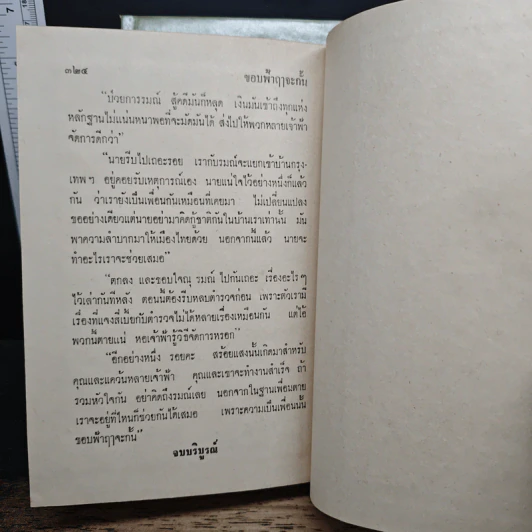 ๓๒๔
ขอบฟ้าฤๅจะกั้น
"ป่วยการรมณ์ สู้คดีมันก็หลุด เงินมันเข้าถึงทุกแห่ง
หลักฐานไม่แน่นหนาพอที่จะมัดมันได้ ส่งไปให้พวกหลายเจ้าฟ้า
จัดการดีกว่า"
"นายรีบไปเถอะรอย เรากับรมณ์จะแยกเข้าบ้านกรุง-
เทพฯ อยู่คอยรับเหตุการณ์เอง นายแน่ใจไว้อย่างหนึ่งก็แล้ว
กัน ว่าเรายังเป็นเพื่อนกันเหมือนที่เคยมา ไม่เปลี่ยนแปลง
ขออย่างเดียวแต่นายอย่ามาคิดกู้ชาติกันในบ้านเราเท่านั้น มัน
พาความลำบากมาให้เมืองไทยด้วย นอกจากนี้แล้ว นายจะ
ทำอะไรเราจะช่วยเสมอ"
"ตกลง และขอบใจณุ รมณ์ ไปกันเถอะ เรื่องอะไรๆ
ไว้เล่ากันทีหลัง ตอนนี้ต้องรีบหลบตำรวจก่อน เพราะตัวเรามี
เรื่องที่แจงสี่เบี้ยกับตำรวจไม่ได้หลายเรื่องเหมือนกัน แต่ไอ้
พวกนี้ตายแน่ หอเจ้าฟ้ารู้วิธีจัดการหรอก"
"อีกอย่างหนึ่ง รอยคะ สร้อยแสงนั้นเกิดมาสำหรับ
คุณและแคว้นหลายเจ้าฟ้า คุณและเขาจะทำงานสำเร็จ ถ้า
รวมหัวใจกัน อย่าคิดถึงรมณ์เลย นอกจากในฐานเพื่อนตาย
เราจะอยู่ที่ไหนก็ช่วยกันได้เสมอ เพราะความเป็นเพื่อนนั้น
ขอบฟ้าฤๅจะกั้น"
จบบริบูรณ์